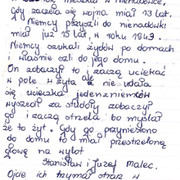 Gdy zaczęła się wojna miał 13 lat.
Niemcy przyszli do nienadówki
miał już 15 lat, w roku 1943
Niemcy szukali żydów po domach
i właśnie szli do jego domu.
On zobaczył to i zaczął uciekać
w pole w żyta ale nie udała
się ucieczka jeden z niemców
wyszedł za stodoły zobaczył
go i zaczął strzela bo myślał
że to żyt. Gdy go przyniesiono
do domu to miał przestrzeloną
głowę na wylot
Stanisław i Juzef Malec.
Ojciec ich trzymał straż w